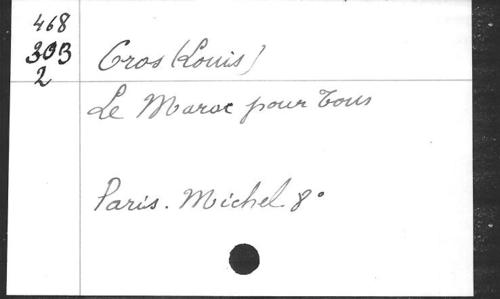 468
303
2
Cros (Louis)
Le Maroc pour Tous
Paris. Michel 8°